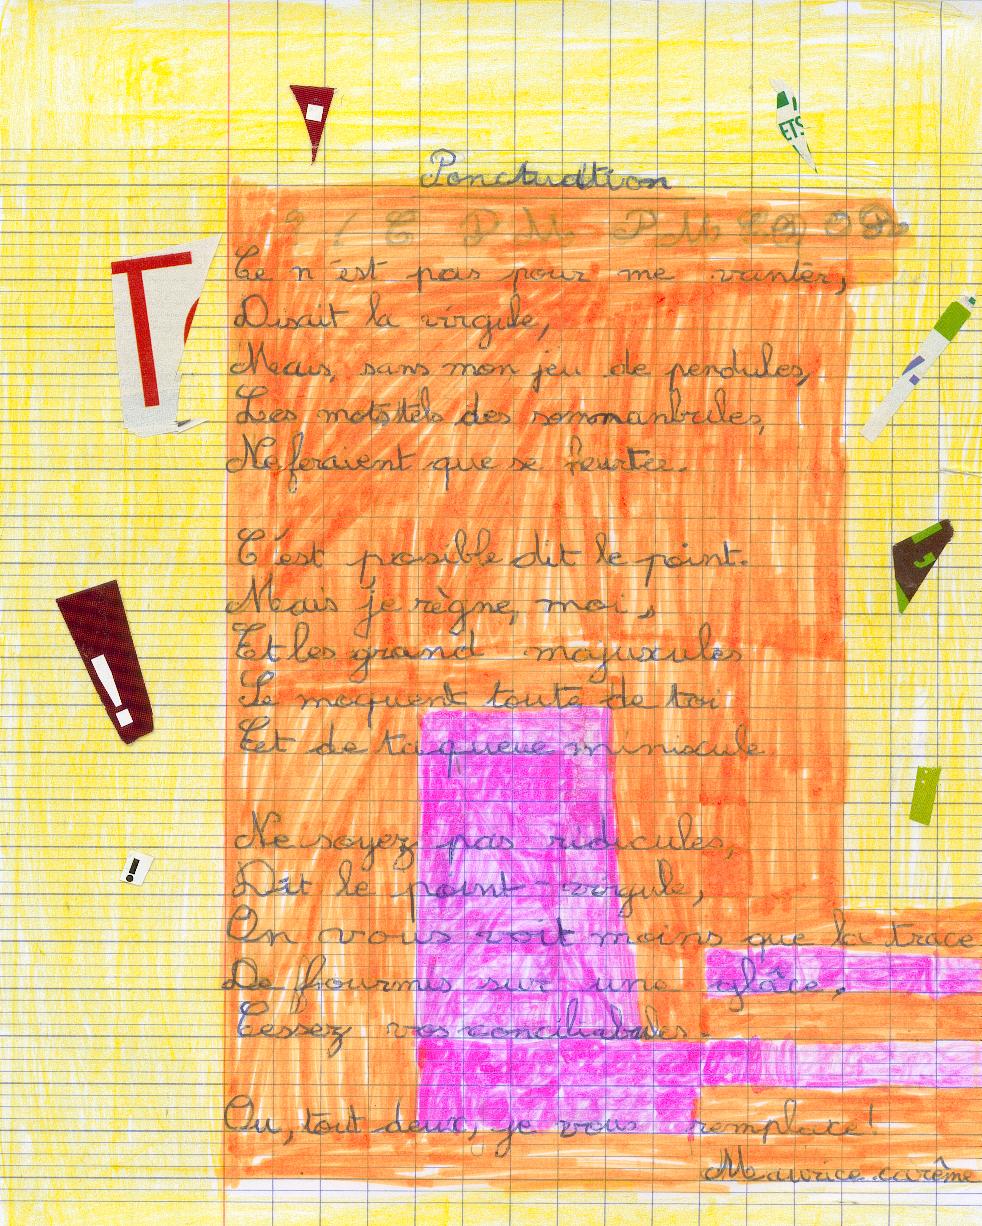 ETS
Ponctuation
Ce n'est pas pour me vanter,
T
Disait la virgule,
Mais, sans mon jeu de pendules,
Les mots tels des somnanbules,
Ne feraient que se heurter.
C'est possible dit le point.
Mais je règne, moi,
Et les grand majuscules
!
Se moquent toute de toi
Et de ta queue miniscule
Ne soyez pas ridicules,
!
Dit le point-virgule,
On vous voit moins que la trace
De fourmis sur une glâce.
Cessez vos conciliabules.
Ou, tout deux, je vous remplace!
Maurice carême